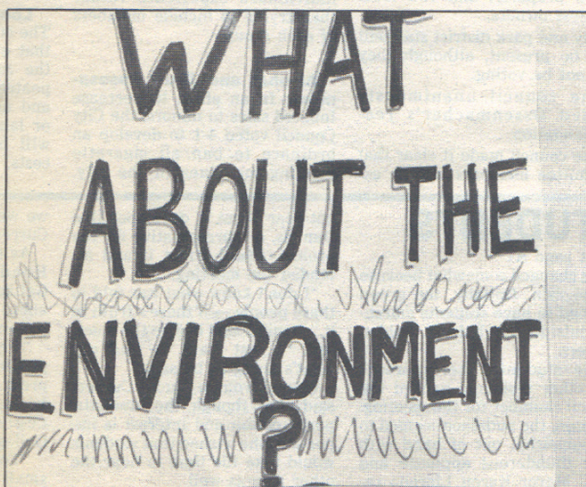 WHAT
ABOUT THE
ENVIRONMENT
?